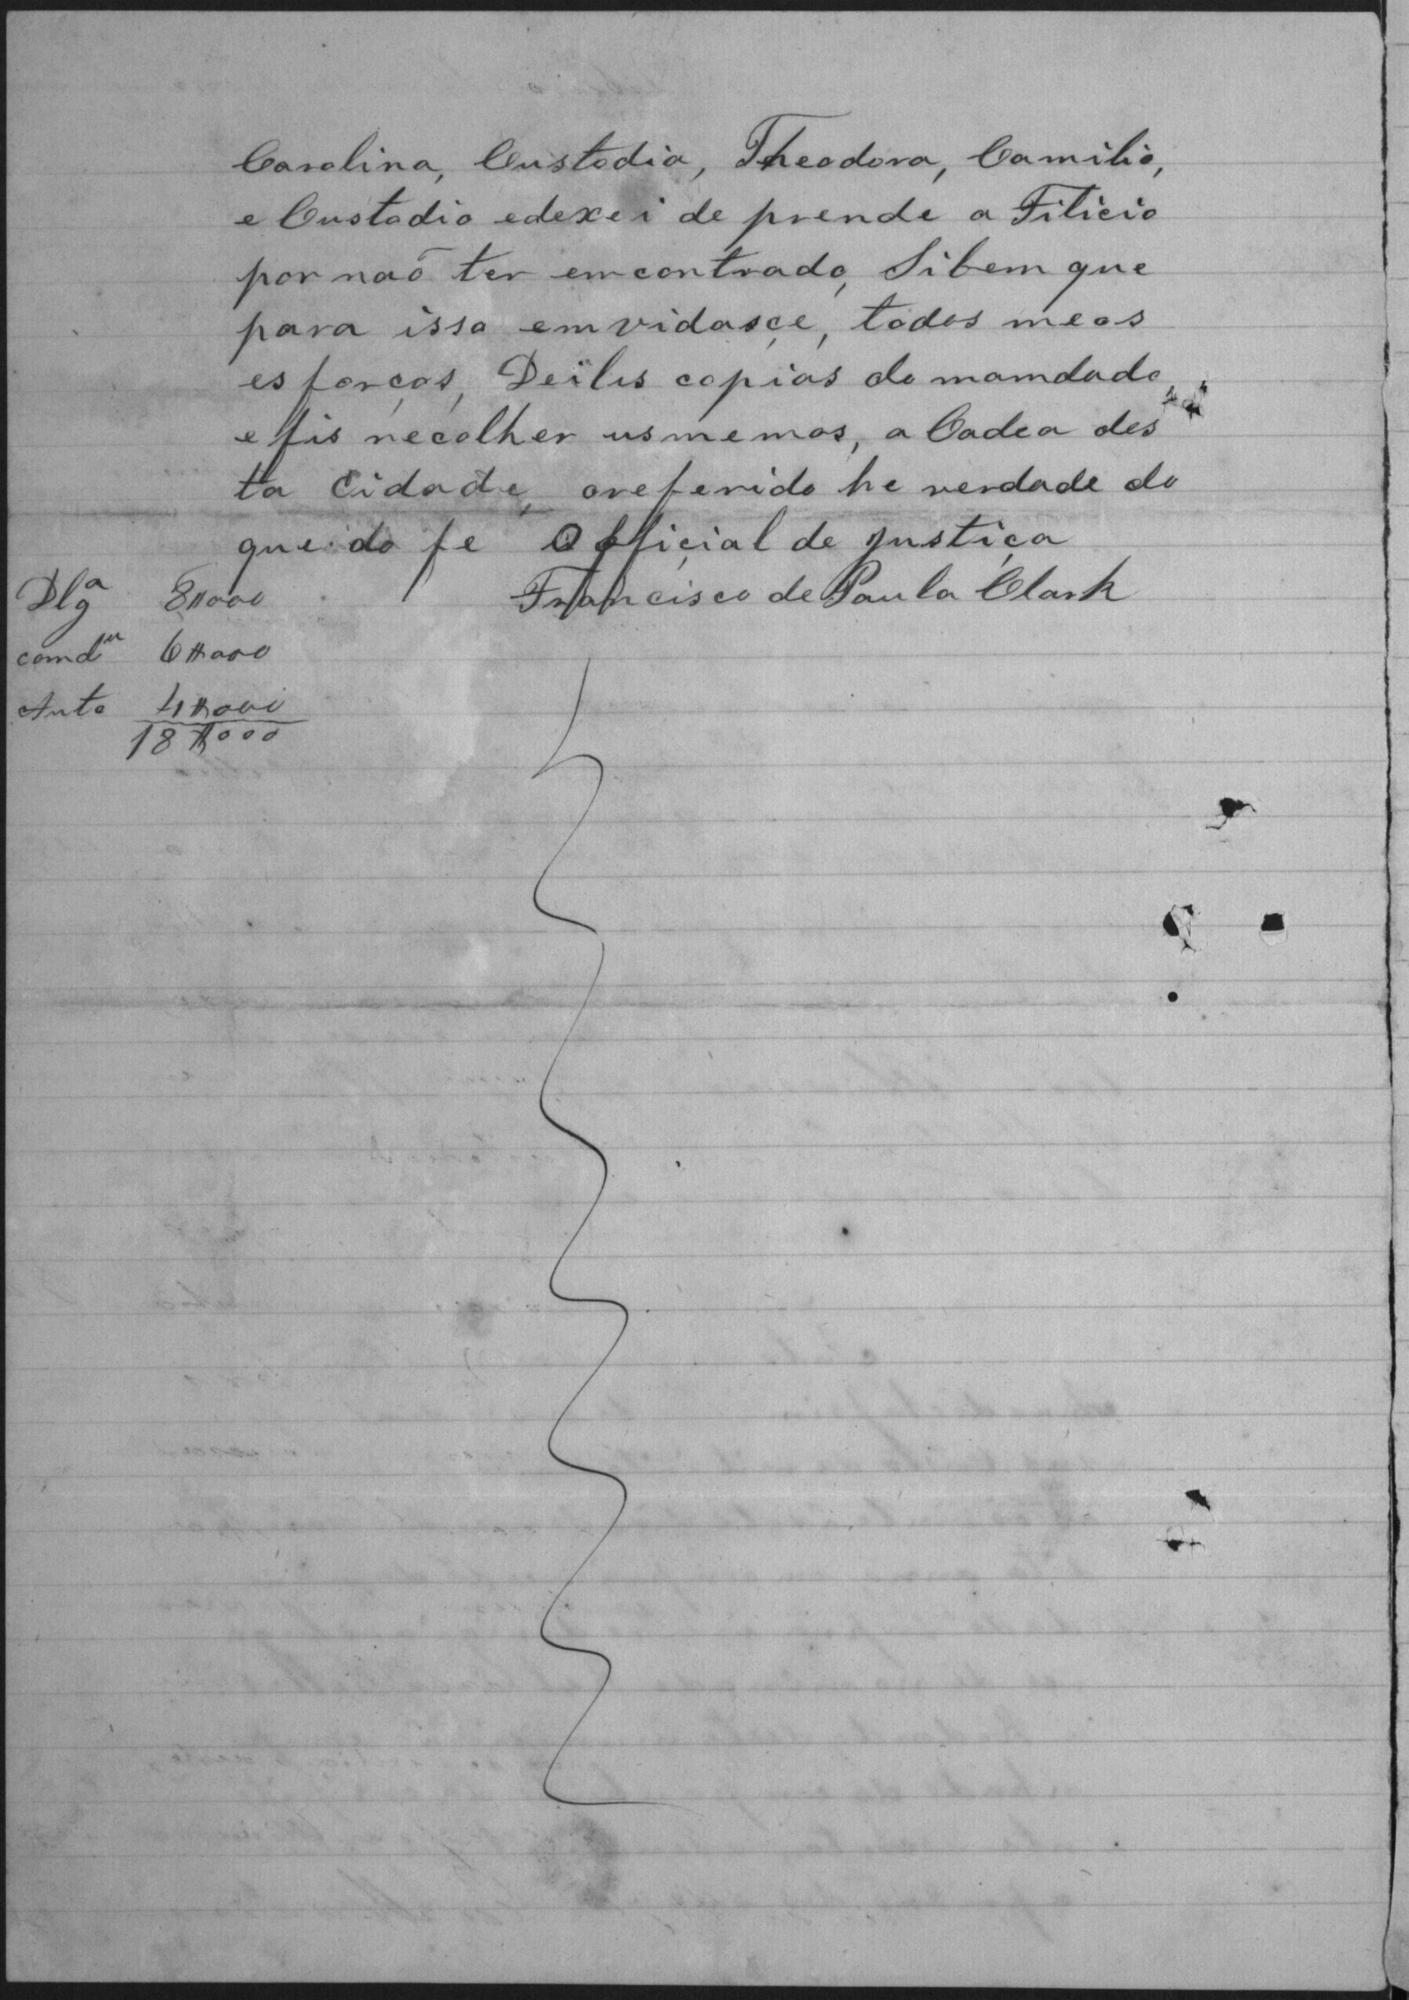 Carolina, Custodia, Theodora, Camilio,
e Custodio edexei de prende a Filicio
por naõ ter emcontrado, Sibem que
para isso emvidasçe, todos meos
esforços, Deilis copias do mamdado
e fis recolher usmemos, a Cadea des
ta Cidade, oreferido he verdade do
que do fe Official de Justiça
Francisco de Paula Clark
Dlgª 8$000
comdm 6$000
Auto 4$000
18$000